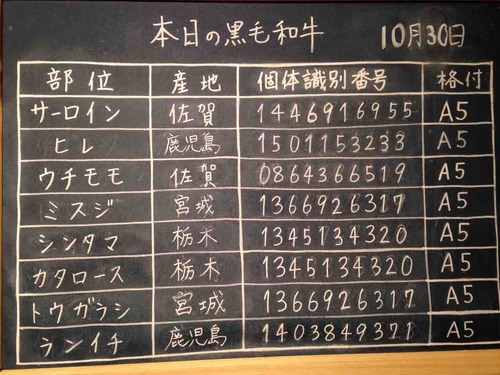 本日の黒毛和牛 10月30日
部位 産地 個体識別番号 格付
サーロイン 佐賀 1446916955 A5
ヒレ 鹿児島 1501153233 A5
ウチモモ 佐賀 0864366519 A5
ミスジ 宮城 1366926317 A5
シンタマ 栃木 1345134320 A5
カタロース 栃木 1345134320 A5
トウガラシ 宮城 1366926317 A5
ランイチ 鹿児島 1403849371 A5